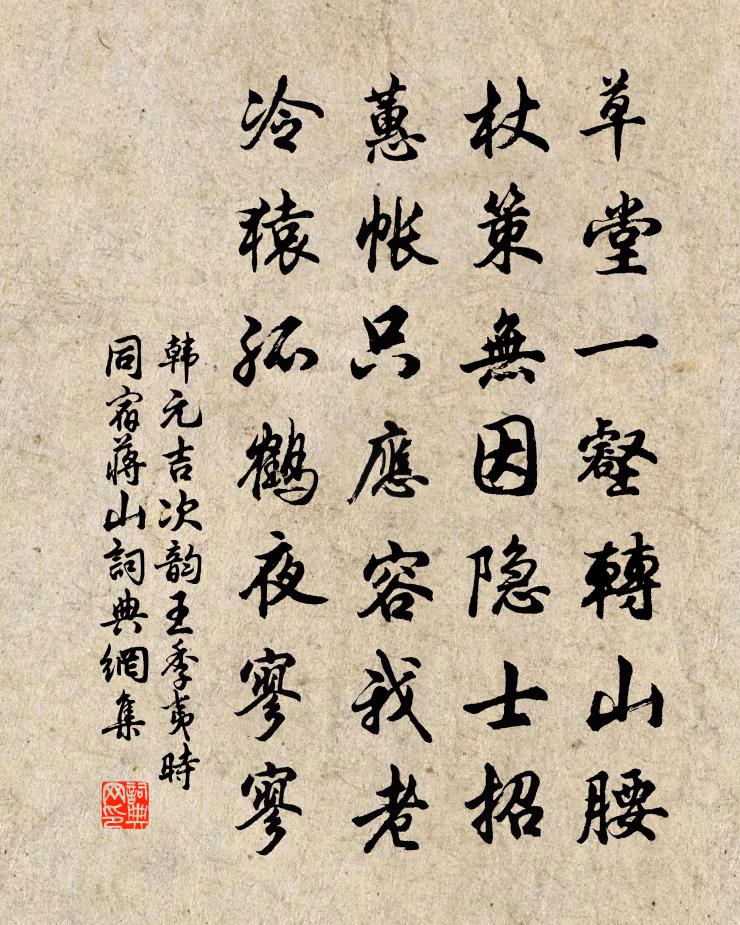 草堂一壑轉山腰
杖策無因隐士招
蕙帐只應容我老
冷猿孤鹤夜寥寥
韩元吉次韵王季夷時
同宿蔣山詞典網集
詞典
网印